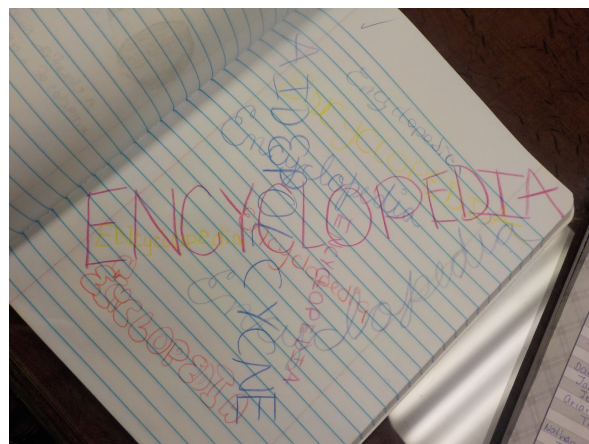 Encyclopedia
ENCYCLOPEDIA
Encyclopedia
AIDEPOLCYCNE
ENCYCLOPEDIA
Encyclopedia
Encyclopedia
ENCYCLOPEDIA
Encyclopedia
ENCYCLOPEDIA
Nathan